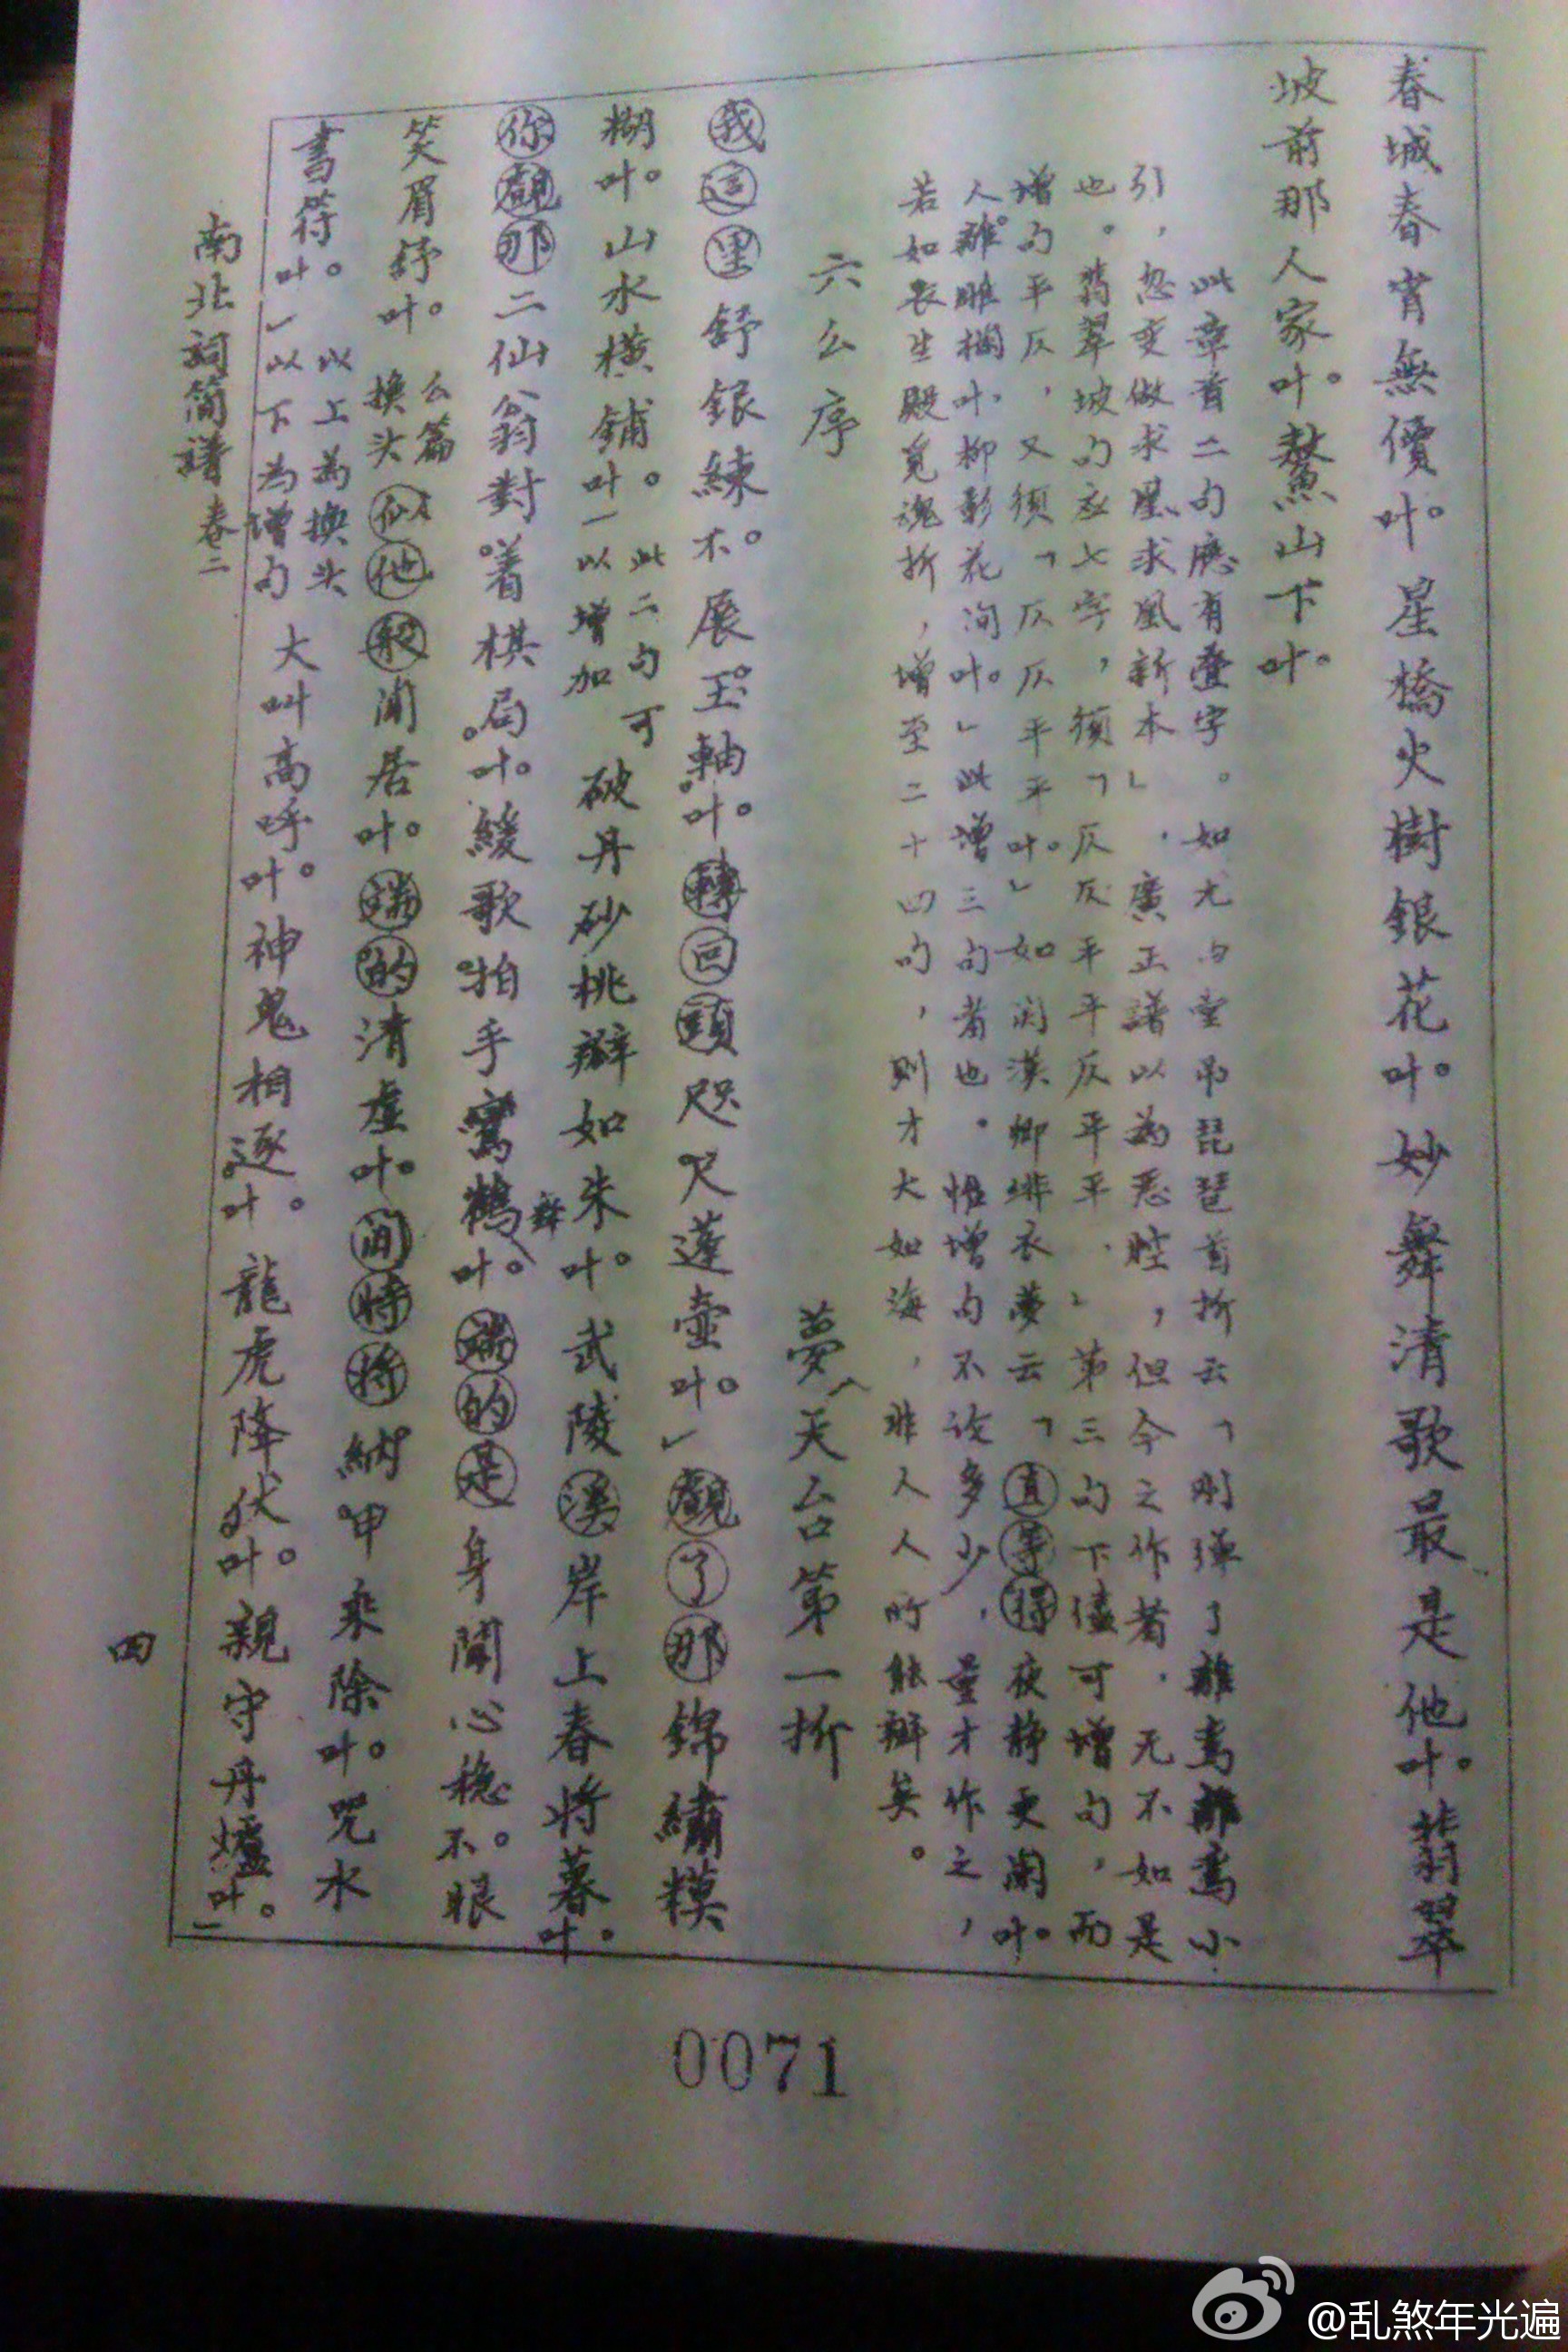 春城春宵無價叶。星橋火樹銀花叶。妙舞清歌最是他叶。翡翠
坡前那人家叶。鰲山下叶。
此章首二句應有疊字。如尤句堂吊琵琶首折云「刚弹了離鸾離鸾小
引，忽变做求凰求凰新本」，廣正譜以為悪腔，但今之作者，无不如是
也。翡翠坡句应七字，须「仄仄平平仄平平，」第三句下儘可增句，而
增句平仄，又须「仄仄平平叶。」如関漢卿绯衣夢云「直等得夜静更阑叶。
人離雕欄叶，柳影花间叶。」此增三句者也。惟增句不论多少，量才作之，
若如長生殿覓魂折，增至二十四句，则才大如海，非人人所能辦矣。
六么序　夢天台第一折
我這里舒銀練不。展玉軸叶。轉回頭咫尺蓬壺叶。」觀了那錦繡糢
糊叶。山水橫鋪叶。此二句可以增加 破丹砂桃瓣如朱叶。武陵溪岸上春將暮叶。
你觀那二仙翁對着棋局叶。緩歌拍手鸞鶴舞叶。端的是身閒心穩不。眼
笑眉舒叶。么篇换头 似他般閒居叶。端的清虛叶。閒時將納甲乘除叶。咒水
書符叶。」以上為换头以下為增句 大叫高呼叶。神鬼相逐叶。龍虎降伏叶。親守丹爐叶。
南北詞簡譜 卷二
四
0071
@乱煞年光遍